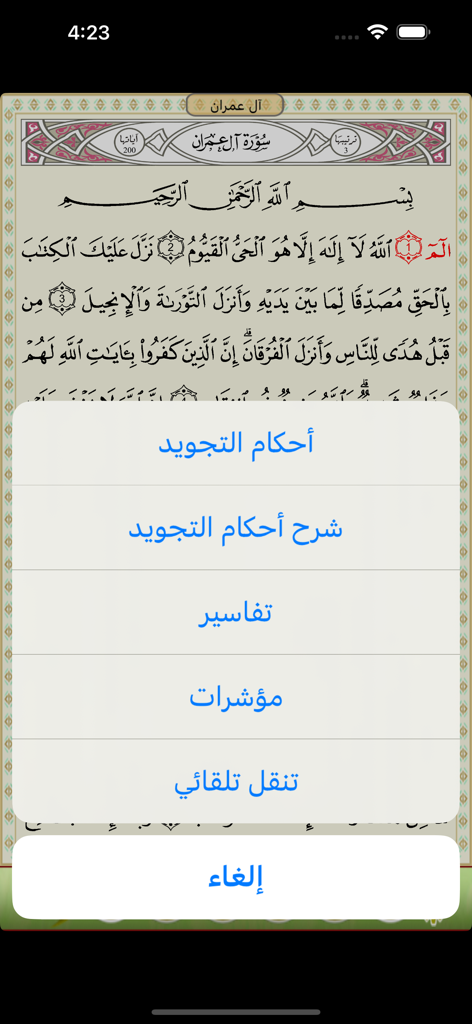 4:23
آل عمران
ترتيبها
3
سُورَةُ آلِ عِمْرَان
آياتها
200
بِسْمِ ٱللَّهِ ٱلرَّحْمَٰنِ ٱلرَّحِيمِ
الٓمٓ 1 ٱللَّهُ لَآ إِلَٰهَ إِلَّا هُوَ ٱلْحَىُّ ٱلْقَيُّومُ 2 نَزَّلَ عَلَيْكَ ٱلْكِتَٰبَ
بِٱلْحَقِّ مُصَدِّقًا لِّمَا بَيْنَ يَدَيْهِ وَأَنزَلَ ٱلتَّوْرَىٰةَ وَٱلْإِنجِيلَ 3 مِن
قَبْلُ هُدًى لِّلنَّاسِ وَأَنزَلَ ٱلْفُرْقَانَ ۗ إِنَّ ٱلَّذِينَ كَفَرُوا۟ بِـَٔايَٰتِ ٱللَّهِ لَهُمْ
أحكام التجويد
شرح أحكام التجويد
تفاسير
مؤشرات
تنقل تلقائي
إلغاء